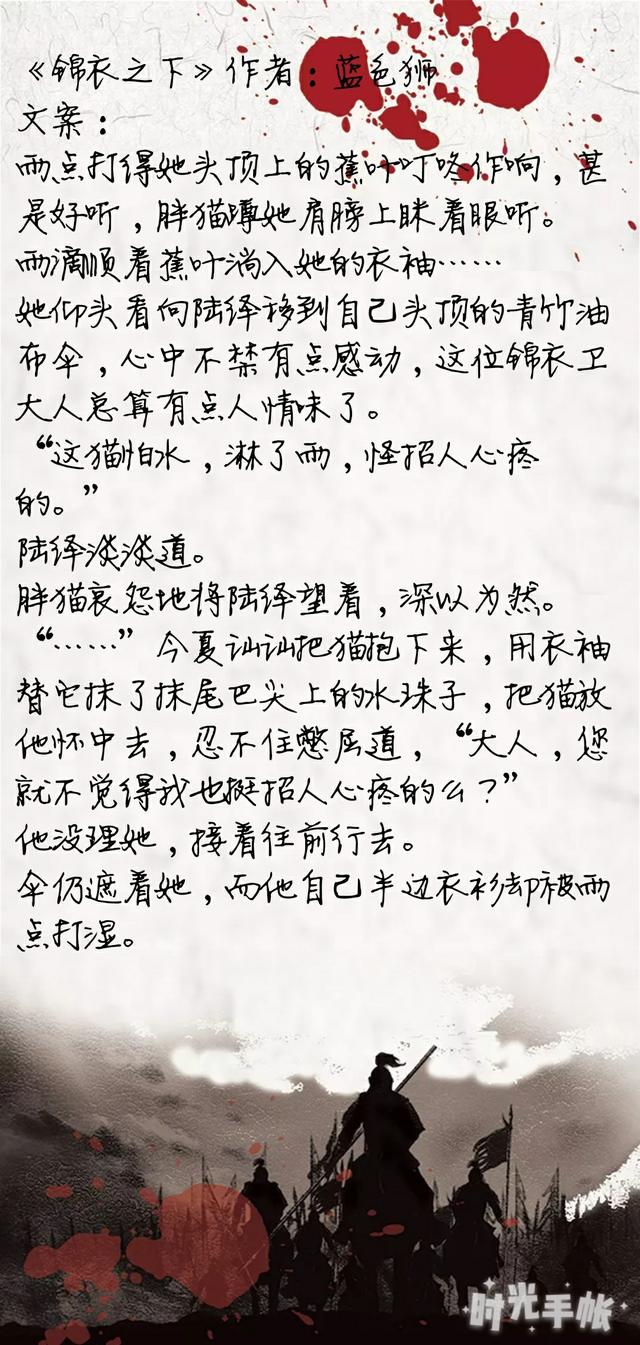 《锦衣之下》作者：蓝色狮
文案：
雨点打得她头顶上的蕉叶叮咚作响，甚
是好听，胖猫蹲她肩膀上眯着眼听。
雨滴顺着蕉叶淌入她的衣袖……
她仰头看向陆绎移到自己头顶的青竹油
布伞，心中不禁有点感动，这位锦衣卫
大人总算有点人情味了。
“这猫怕水，淋了雨，怪招人心疼
的。”
陆绎淡淡道。
胖猫哀怨地将陆绎望着，深以为然。
“……”今夏讪讪把猫抱下来，用衣袖
替它抹了抹尾巴尖上的水珠子，把猫放
他怀中去，忍不住憋屈道，“大人，您
就不觉得我也挺招人心疼的么？”
他没理她，接着往前行去。
伞仍遮着她，而他自己半边衣衫却被雨
点打湿。
时光手帐